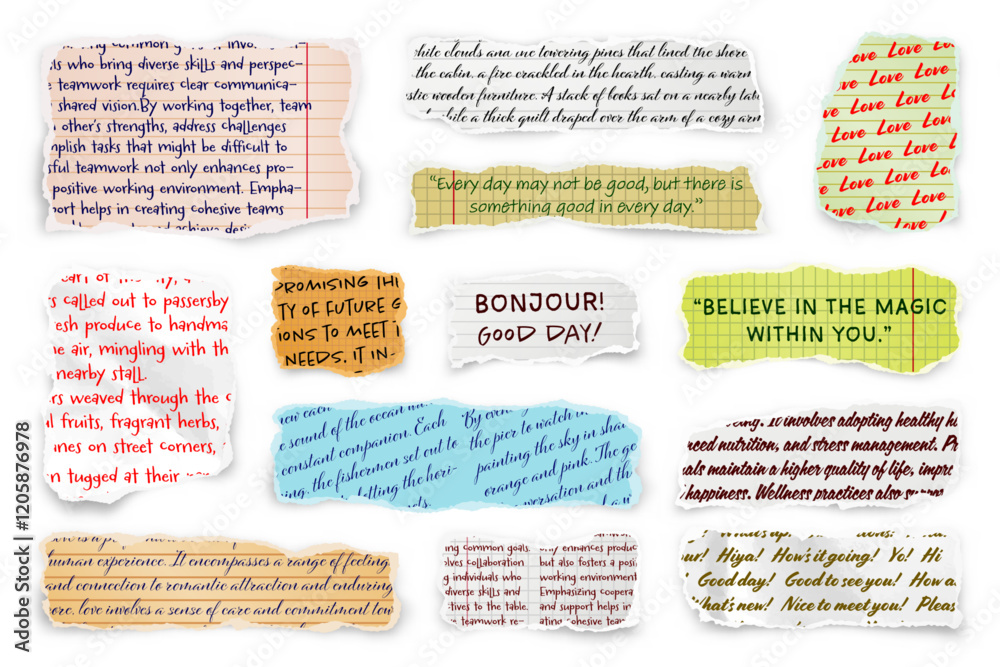 ls who bring diverse skills and perspec-
teamwork requires clear communica-
shared vision.By working together, team
other's strengths, address challenges
mplish tasks that might be difficult to
sful teamwork not only enhances pro-
positive working environment. Empha-
port helps in creating cohesive teams
white clouds and the towering pines that lined the shore
the cabin, a fire crackled in the hearth, casting a warm
stic wooden furniture. A stack of books sat on a nearby tab
while a thick quilt draped over the arm of a cozy arm
Love Love Love
Love Love Love
Love Love Love
Love Love Love
Love Love Love
Love Love Love
Love Love Love
"Every day may not be good, but there is
something good in every day."
rs called out to passersby
esh produce to handma
he air, mingling with th
nearby stall.
rs weaved through the c
l fruits, fragrant herbs,
ines on street corners,
n tugged at their
PROMISING THI
TY OF FUTURE G
IONS TO MEET I
NEEDS. IT IN-
BONJOUR!
GOOD DAY!
"BELIEVE IN THE MAGIC
WITHIN YOU."
sound of the ocean wa
constant companion. Each
the fishermen set out to
letting the hori-
By even
the pier to watch
painting the sky in sha
orange and pink. The ge
conversation and th
ing. It involves adopting healthy ha
nced nutrition, and stress management. Pr
als maintain a higher quality of life, impro
happiness. Wellness practices also suppo
human experience. It encompasses a range of feeling
and connection to romantic attraction and enduring
more, love involves a sense of care and commitment tow
ing common goals.
olves collaboration
g individuals who
diverse skills and
ctives to the table.
teamwork re-
only enhances produc
but also fosters a posi
working environment
Emphasizing coopera
and support helps in
ating cohesive team
our! Hiya! How's it going! Yo! Hi
Good day! Good to see you! How a
What's new! Nice to meet you! Pleas
Adobe Stock | #1205876978